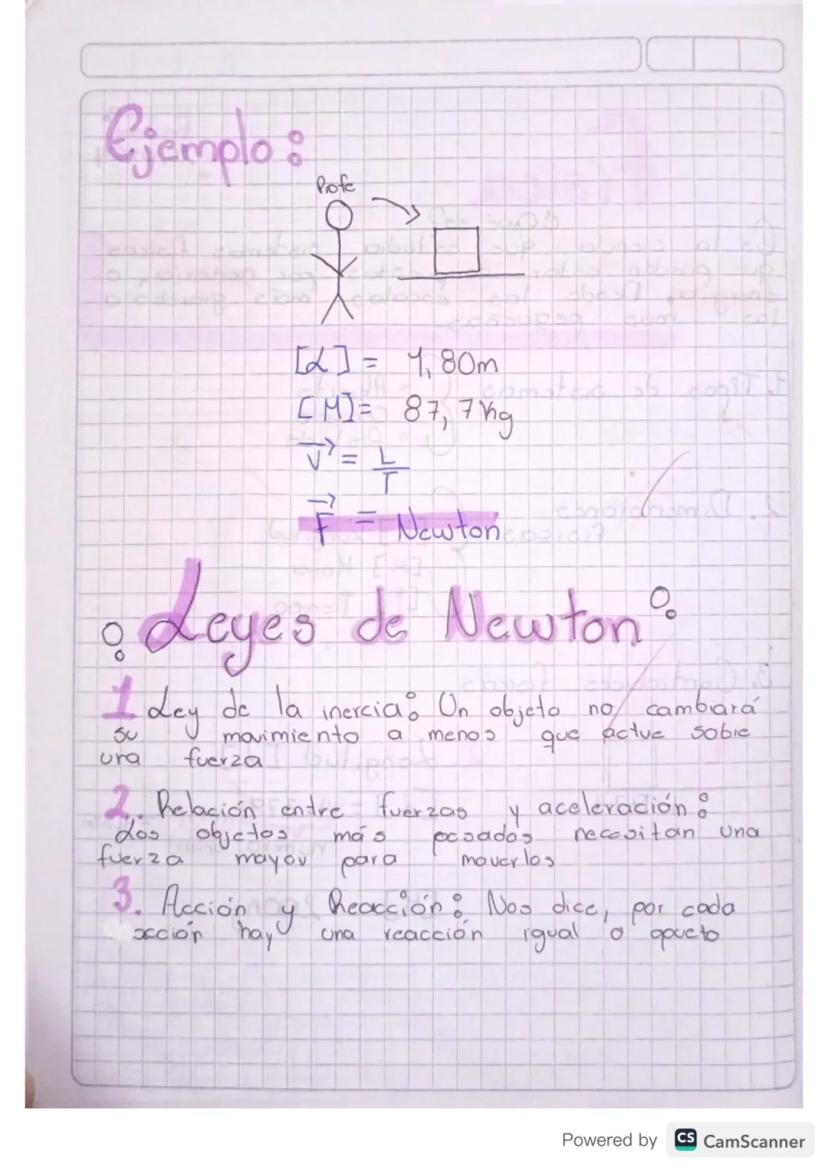 Ejemplo:
Profe
[L] = 1,80m
[M] = 87,7Kg
V = L/T
F = Newton
: Leyes de Newton:
1 Ley de la inercia: Un objeto no cambiará
su movimiento a menos que actue sobre
una fuerza
2. Relación entre fuerzas y aceleración:
Los objetos más pesados necesitan una
fuerza mayor para moverlos
3. Acción y Reacción: Nos dice, por cada
acción hay una reacción igual o opueto
Powered by CS CamScanner